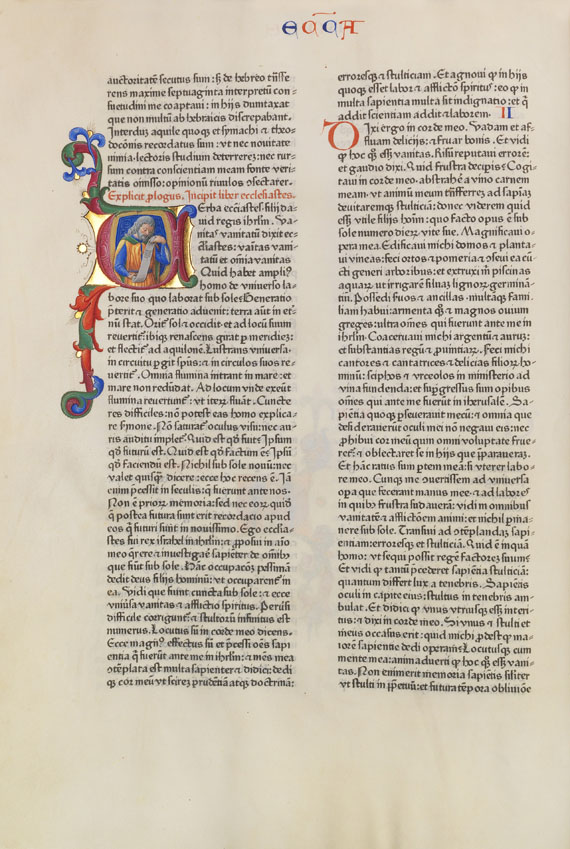 ECCA
auctoritatē secutus sum: sȝ de hebreo trāsfe
rens maxime septuaginta interpretū con-
suetudini me coaptaui: in hijs dumtaxat
que non multū ab hebraicis discrepabant.
Interdū aquile quoqꝫ et symachi ⁊ theo-
docōnis recordatus sum: vt nec nouitate
nimia lectoris studium deterrerez: nec rur-
sum contra conscientiam meam fonte veri-
tatis omisso: opinionū riuulos ꝯsectarer.
Explicit ꝓlogus. Incipit liber ecclesiastes.
Verba ecclīastes filij da-
uid regis ihrlm. Va-
nitas vanitatū dixit ec-
clīastes: vanitas vani-
tatū et omnia vanitas
Quid habet ampliꝰ
homo de vniuerso la-
bore suo quo laborat sub sole? Generatio
p̄terit ⁊ generatio aduenit: terra aūt in et̄-
nū stat. Oritꝛ sol ⁊ occidit: et ad locū suum
reuertitꝛ: ibiqꝫ renascens girat ꝑ meridiez:
et flectitꝛ ad aquilonē. Lustrans vniuersa
in circuitu ꝑgit sp̄us: ⁊ in circulos suos re-
uertitꝛ. Omnia flumina intrant in mare: et
mare non redūdat. Ad locum vnde exeūt
flumina reuertūtꝛ: vt iteꝝ fluāt. Cuncte
res difficiles: nō potest eas homo explica-
re ſmone. Nō saturatꝛ oculus visu: nec au-
ris auditu impletꝛ. Quid est qd̄ fuit? Ipsum
qd̄ futurū est. Quid est qd̄ factum ē? Ip̄sū
qd̄ faciendū est. Nichil sub sole nouū: nec
valet quisqꝫ dicere: ecce hoc recens ē. Iā
enim p̄cessit in seculis: q̄ fuerunt ante nos.
Non ē prioꝝ memoria: sed nec eoꝝ quidē
q̄ postea futura sunt erit recordacio apud
eos q̄ futuri sunt in nouissimo. Ego ecclīa-
stes fui rex israhel in ihrlm: ⁊ ꝓposui in aīo
meo q̄rere ⁊ inuestigare sapiēter de omībꝫ
que fiūt sub sole. Hāc occupacōꝫ pessimā
dedit deus filijs hominū: vt occuparentꝛ in
ea. Vidi que fiunt cuncta sub sole: ⁊ ecce
vniūsa vanitas ⁊ afflictio spiritus. Peruſi
difficile corrigūtꝛ: ⁊ stultorū infinitus est
numerus. Locutus sū in corde meo dicens.
Ecce magnꝰ effectus sū et p̄cessi oēs sapi
entia q̄ fuerūt ante me in ihrlm: ⁊ mēs mea
ꝯtēplata est multa sapienter ⁊ didici: dedi
qꝫ cor meū vt scirez prudētiā atqꝫ doctrinā:
erroresqꝫ ⁊ stulticiam. Et agnoui ꝙ in hijs
quoqꝫ esset labor ⁊ afflictō spiritus: eo ꝙ in
multa sapientia multa sit indignatio: et q̄
addit scientiam addit ⁊ laborem. II
Dixi ergo in corde meo. Vadam et af-
fluam delicijs: ⁊ fruar bonis. Et vidi
ꝙ hoc qꝫ eēt vanitas. Risū reputaui errorē:
et gaudio dixi. Quid frustra decipis? Cogi-
taui in corde meo abstrahē a vino carnem
meam: vt animū meum trāsferrez ad sapiāz
deuitaremqꝫ stulticiam: donec viderem quid
eēt vtile filijs hoīm: quo facto opus ē sub
sole numero dierꝝ vite sue. Magnificaui o-
pera mea. Edificaui michi domos ⁊ planta-
ui vineas: feci ortos ⁊ pomeria ⁊ ꝯseui ea cū-
cti generi arboribus: et extruxi m̄ piscinas
aquaꝝ: vt irrigarē siluaz lignorꝝ germinā-
tiū. Possedi suos ⁊ ancillas ⁊ multāqꝫ fami-
liam habui: armenta qꝫ ⁊ magnos ouium
greges: vltra omēs qui fuerunt ante me in
ihrlm. Coaceruaui michi argentū ⁊ auruz:
et substantias regū ⁊ ꝓuinciaꝝ. Feci michi
cantores ⁊ cantatrices ⁊ delicias filioꝝ ho-
minū: sciphos ⁊ vrceolos in ministerio ad
vina fundenda: et sup̄gressus sum opibus
omēs qui ante me fuerūt in iherusalē. Sa-
pientia quoqꝫ ꝑseuerauit mecū: ⁊ omnia que
desiderauerūt oculi mei nō negaui eis: nec
ꝓhibui cor meū quin omni voluptate frue-
retꝛ: ⁊ oblectaret se in hijs que ip̄parauerā.
Et hāc ratus sum ꝑtem meā: si vterer labo-
re meo. Cunqꝫ me ꝯuertissem ad vniuersa
opa que fecerant manus mee: ⁊ ad labores
in quibꝫ frustra sudauerā: vidi in omnibus
vanitatē ⁊ afflictōem animi: et nichil ꝑma-
nere sub sole. Transiui ad ꝯtēplandaz sapi-
entiam: errores qꝫ et stulticiā. Quid ē inquā
homo: vt sequi possit regē factorez suum?
Et vidi ꝙ tantū p̄cederet sapiētia stulticiā:
quantum differt lux a tenebris. Sapiētis
oculi in capite eius: stultus in tenebris am-
bulat. Et didici ꝙ vnus vtriusqꝫ eēt interi-
tus: ⁊ dixi in corde meo. Si vnus ⁊ stulti et
meus occasus erit: quid michi ꝓdest ꝙ ma-
iorē sapientie dedi operam? Locutusqꝫ cum
mente mea: animaduerti ꝙ hoc qꝫ eēt vani-
tas. Non enim erit memoria sapiētis similiter
vt stulti in ꝑpetuū: et futura tēpora obliuiōe